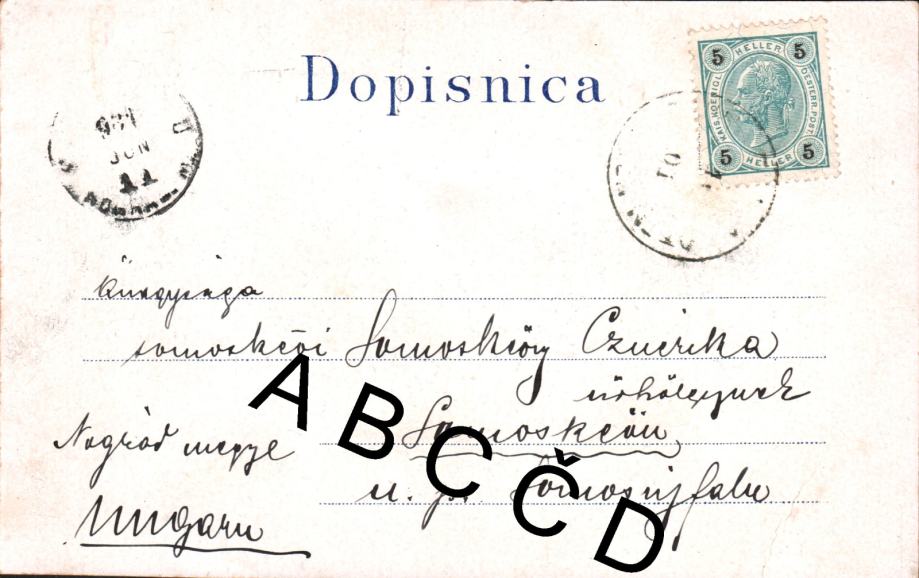 Dopisnica
5 HELLER 5
KAIS. KOENIGL. OESTERR. POST.
5 HELLER 5
JUN
11
10
Őnagysága
somoskeői Somosköy Czuczika
úrhölgynek
Somoskeőn
Nógrád megye
u. p. Somosújfalu
Ungarn
A B C Č D